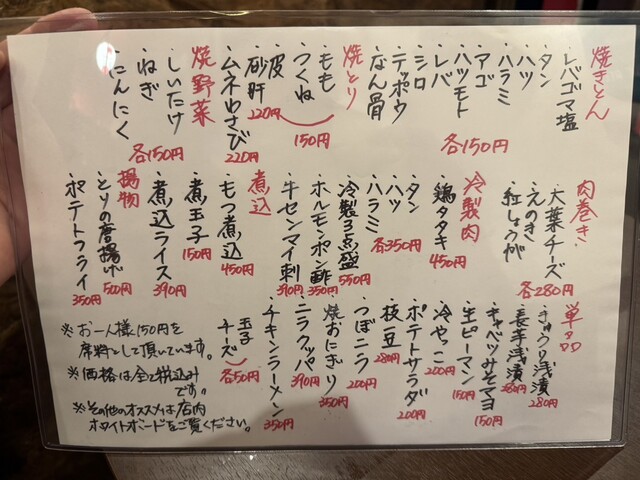 焼きとん
・レバゴマ塩
・タン
・ハツ
・ハラミ
・アゴ
・ハツモト
・レバ
・シロ
・テッポウ
・なん骨
各150円
焼とり
・もも
・つくね
・皮
150円
・砂肝
220円
・ムネわさび
220円
焼野菜
・しいたけ
・ねぎ
・にんにく
各150円
肉巻き
・大葉チーズ
・えのき
・紅しょうが
各280円
冷製肉
・鶏タタキ
450円
・タン
・ハツ
・ハラミ
各350円
・冷製3点盛
550円
・ホルモンポン酢
350円
・牛センマイ刺
390円
煮込
・もつ煮込
450円
・煮玉子
150円
・煮込ライス
390円
揚物
・とりの唐揚げ
500円
・ポテトフライ
350円
単品
・きゅうり浅漬
280円
・長芋浅漬
280円
・キャベツみそマヨ
150円
・生ピーマン
150円
・冷やっこ
200円
・ポテトサラダ
200円
・枝豆
280円
・つぼニラ
200円
・焼おにぎり
350円
・ニラクッパ
390円
・チキンラーメン
350円
玉子
チーズ
各50円
※お一人様150円を
席料として頂いています。
※価格は全て税込み
です。
※その他のオススメは店内
ホワイトボードをご覧ください。